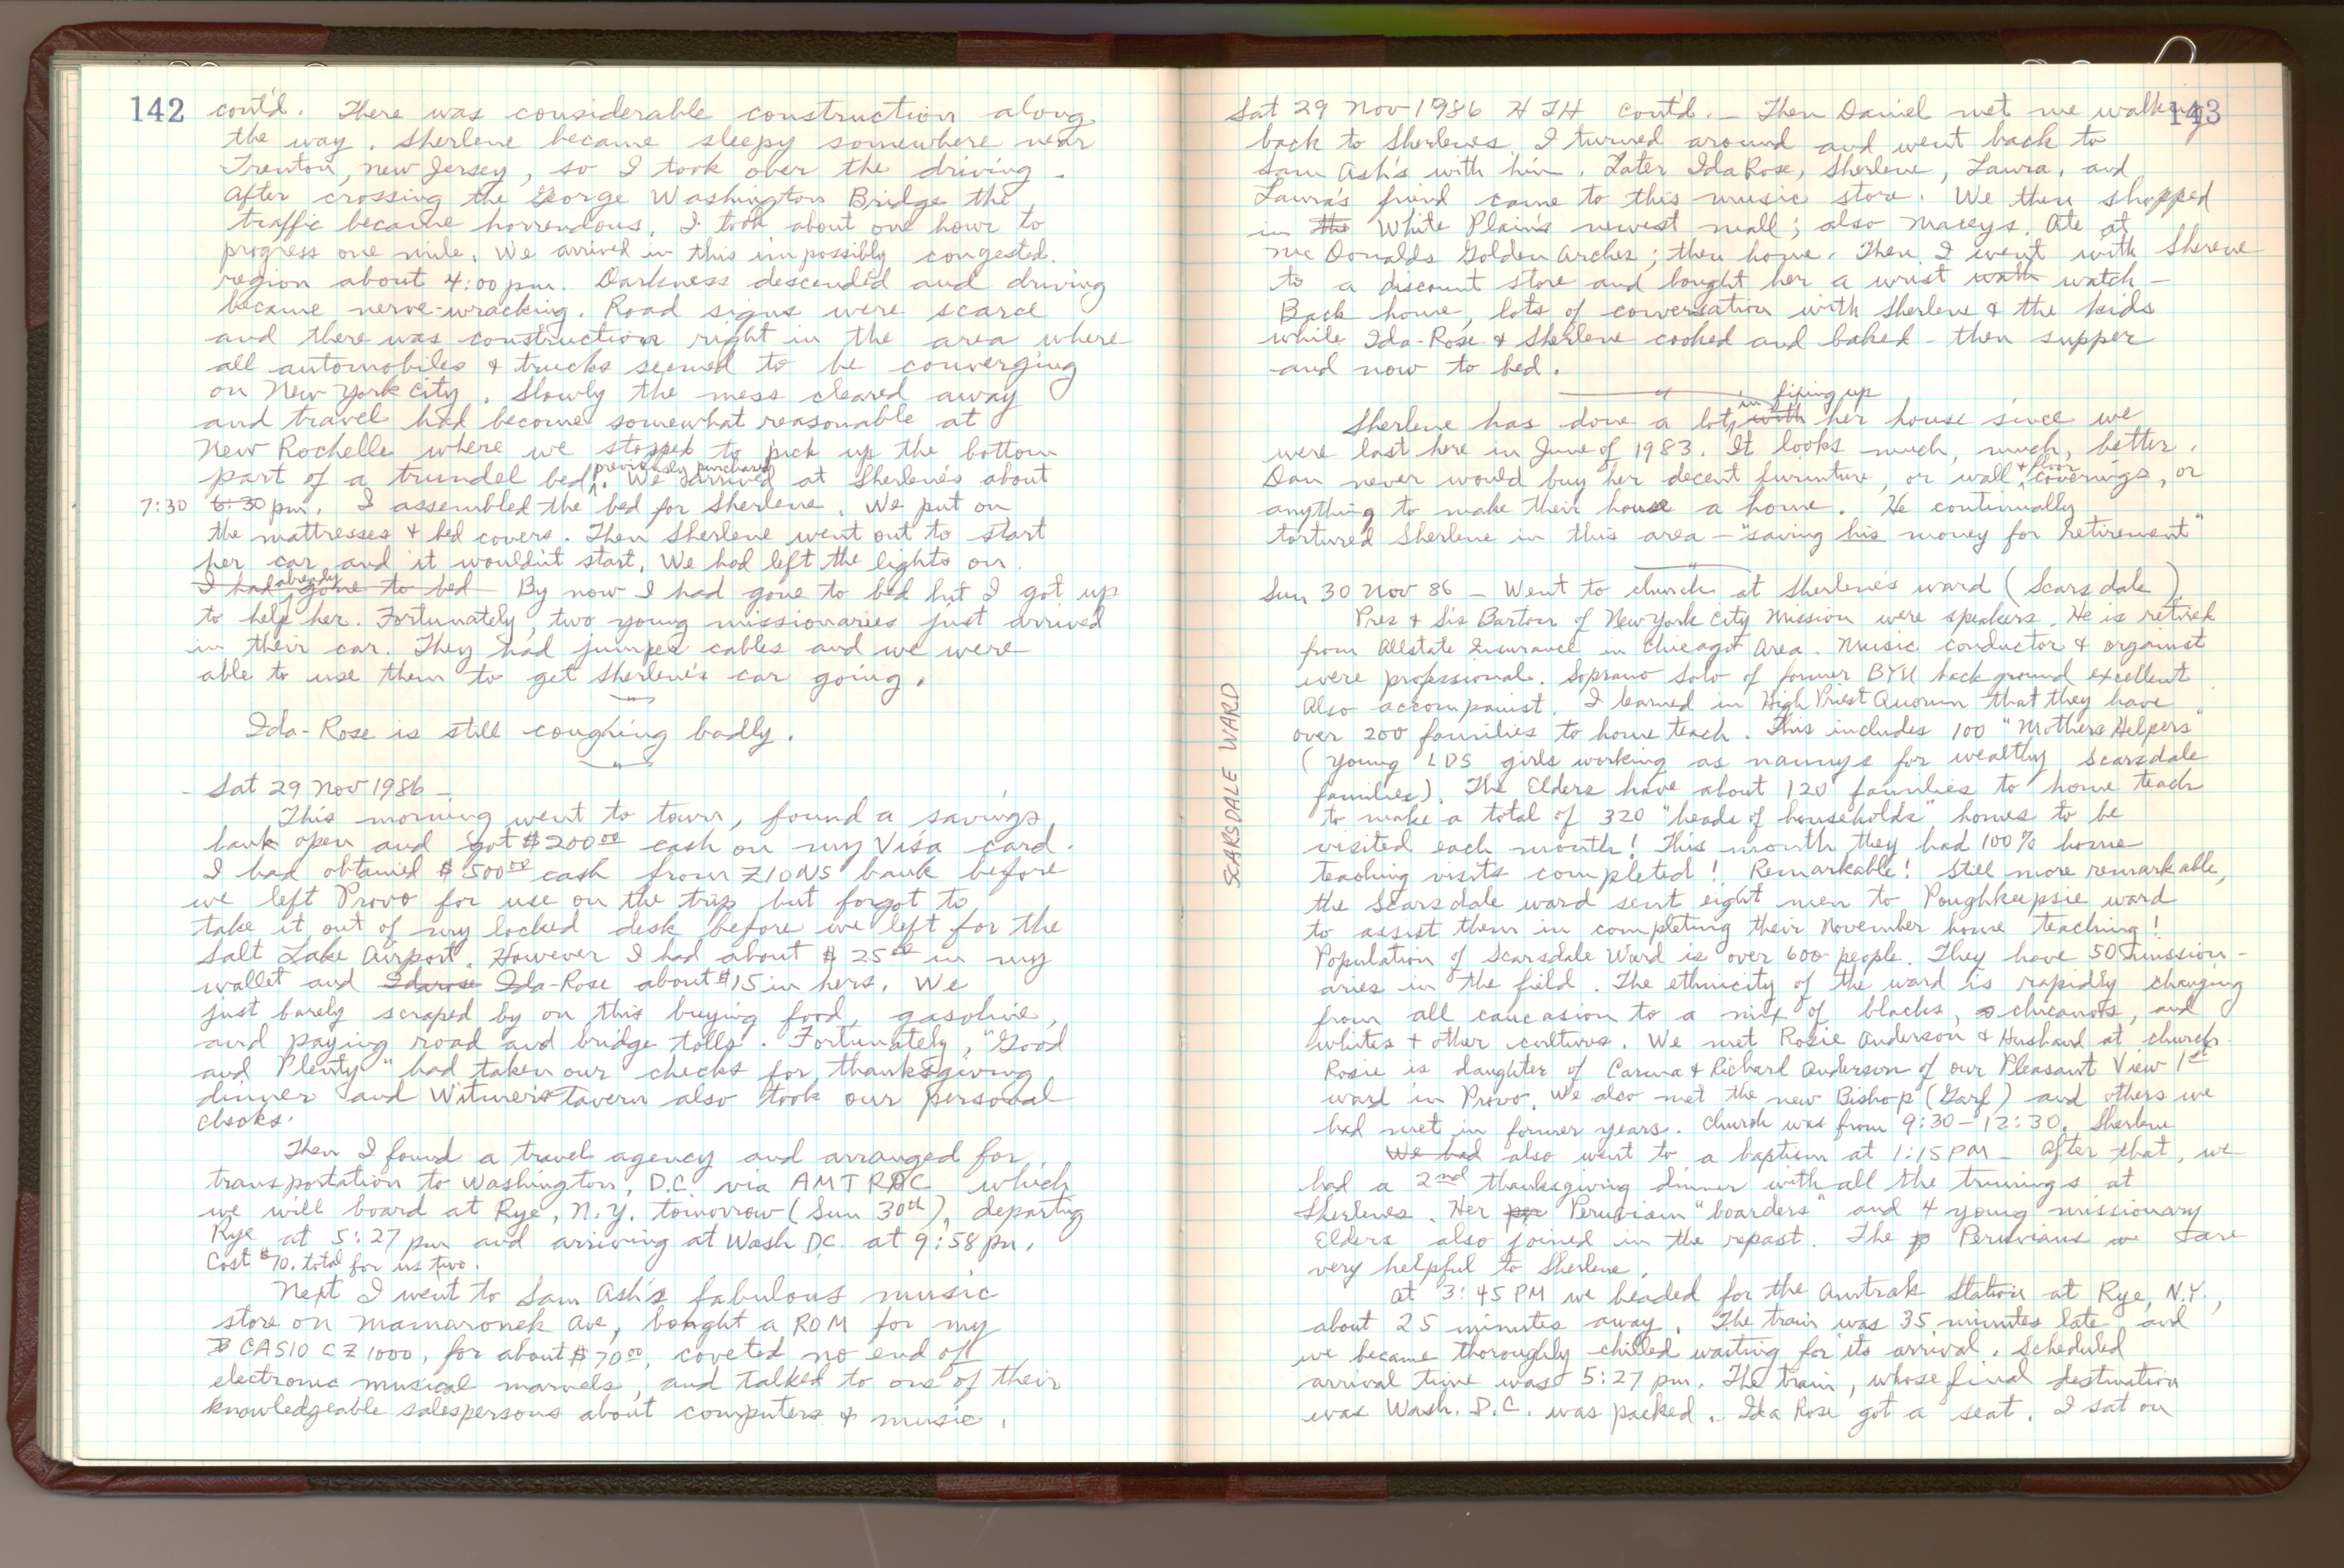 142 cont'd. There was considerable construction along
the way. Sherlene became sleepy somewhere near
Trenton, New Jersey, so I took over the driving.
After crossing the George Washington Bridge the
traffic became horrendous. I took about one hour to
progress one mile. We arrived in this impossibly congested
region about 4:00 pm. Darkness descended and driving
became nerve-wracking. Road signs were scarce
and there was construction right in the area where
all automobiles & trucks seemed to be converging
on New York City. Slowly the mess cleared away
and travel had become somewhat reasonable at
New Rochelle where we stopped to pick up the bottom
part of a trundel bed previously purchased. We arrived at Sherlene's about
7:30 6:30 pm. I assembled the bed for Sherlene. We put on
the mattresses & bed covers. Then Sherlene went out to start
her car and it wouldn't start. We had left the lights on.
I had already gone to bed By now I had gone to bed but I got up
to help her. Fortunately, two young missionaries just arrived
in their car. They had jumper cables and we were
able to use them to get Sherlene's car going.
Ida-Rose is still coughing badly.
- Sat 29 Nov 1986 -
This morning went to town, found a savings
bank open and got $200.00 cash on my Visa card.
I had obtained $500.00 cash from ZIONS bank before
we left Provo for use on the trip but forgot to
take it out of my locked desk before we left for the
Salt Lake Airport. However I had about $25.00 in my
wallet and Idarose Ida-Rose about $15 in hers. We
just barely scraped by on this buying food, gasoline,
and paying road and bridge tolls. Fortunately, "Good
and Plenty" had taken our checks for thanksgiving
dinner and Witmer's Tavern also took our personal
checks.
Then I found a travel agency and arranged for
transportation to Washington, D.C. via AMTRAC which
we will board at Rye, N.Y. tomorrow (Sun 30th), departing
Rye at 5:27 pm and arriving at Wash DC. at 9:58 pm.
Cost $70. total for us two.
Next I went to Sam Ash's fabulous music
store on Mamaronek Ave, bought a ROM for my
CASIO CZ 1000, for about $70.00, coveted no end of
electronic musical marvels, and talked to one of their
knowledgeable salespersons about computers & music.
Sat 29 Nov 1986 HTH Cont'd. - Then Daniel met me walking 143
back to Sherlenes. I turned around and went back to
Sam Ash's with him. Later IdaRose, Sherlene, Laura, and
Laura's friend came to this music store. We then shopped
in the White Plain's newest mall; also Maceys. Ate at
McDonalds Golden Arches; then home. Then I went with Sherene
to a discount store and bought her a wrist wath watch -
Back home, lots of conversation with Sherlene & the kids
while Ida-Rose & Sherlene cooked and baked - then supper
and now to bed.
Sherlene has done a lot with in fixing up her house since we
were last here in June of 1983. It looks much, much, better.
Dan never would buy her decent furniture, or wall & floor coverings, or
anything to make their house a home. He continually
tortured Sherlene in this area - "saving his money for retirement"
Sun 30 Nov 86 - Went to church at Sherlene's ward (Scarsdale)
SCARSDALE WARD
Pres & Sis Barton of New York City Mission were speakers. He is retired
from Allstate Insurance in Chicago Area. Music conductor & organist
were professional. Soprano solo of former BYU background excellent
Also accompanist. I learned in High Priest Quorum that they have
over 200 families to home teach. This includes 100 "Mothers Helpers"
(young LDS girls working as nannys for wealthy Scarsdale
families). The Elders have about 120 families to home teach
to make a total of 320 "heads of households" homes to be
visited each month! This month they had 100% home
teaching visits completed! Remarkable! Still more remarkable,
the Scarsdale ward sent eight men to Poughkeepsie ward
to assist them in completing their November home teaching!
Population of Scarsdale Ward is over 600 people. They have 50 mission-
aries in the field. The ethnicity of the ward is rapidly changing
from all caucasion to a mix of blacks, chicanos, and
whites & other cultures. We met Rosie Anderson & Husband at church.
Rosie is daughter of Carma & Richard Anderson of our Pleasant View 1st
ward in Provo. We also met the new Bishop (Garf) and others we
had met in former years. Church was from 9:30 - 12:30. Sherlene
We had also went to a baptism at 1:15 PM - After that, we
had a 2nd thanksgiving dinner with all the trimings at
Sherlenes. Her per Peruvian "boarders" and 4 young missionary
Elders also joined in the repast. The p Peruvians are
very helpful to Sherlene.
At 3:45 PM we headed for the Amtrak Station at Rye, N.Y.,
about 25 minutes away. The train was 35 minutes late and
we became thoroughly chilled waiting for its arrival. Scheduled
arrival time was 5:27 pm. The train, whose final destination
was Wash. D.C. was packed. Ida Rose got a seat. I sat on